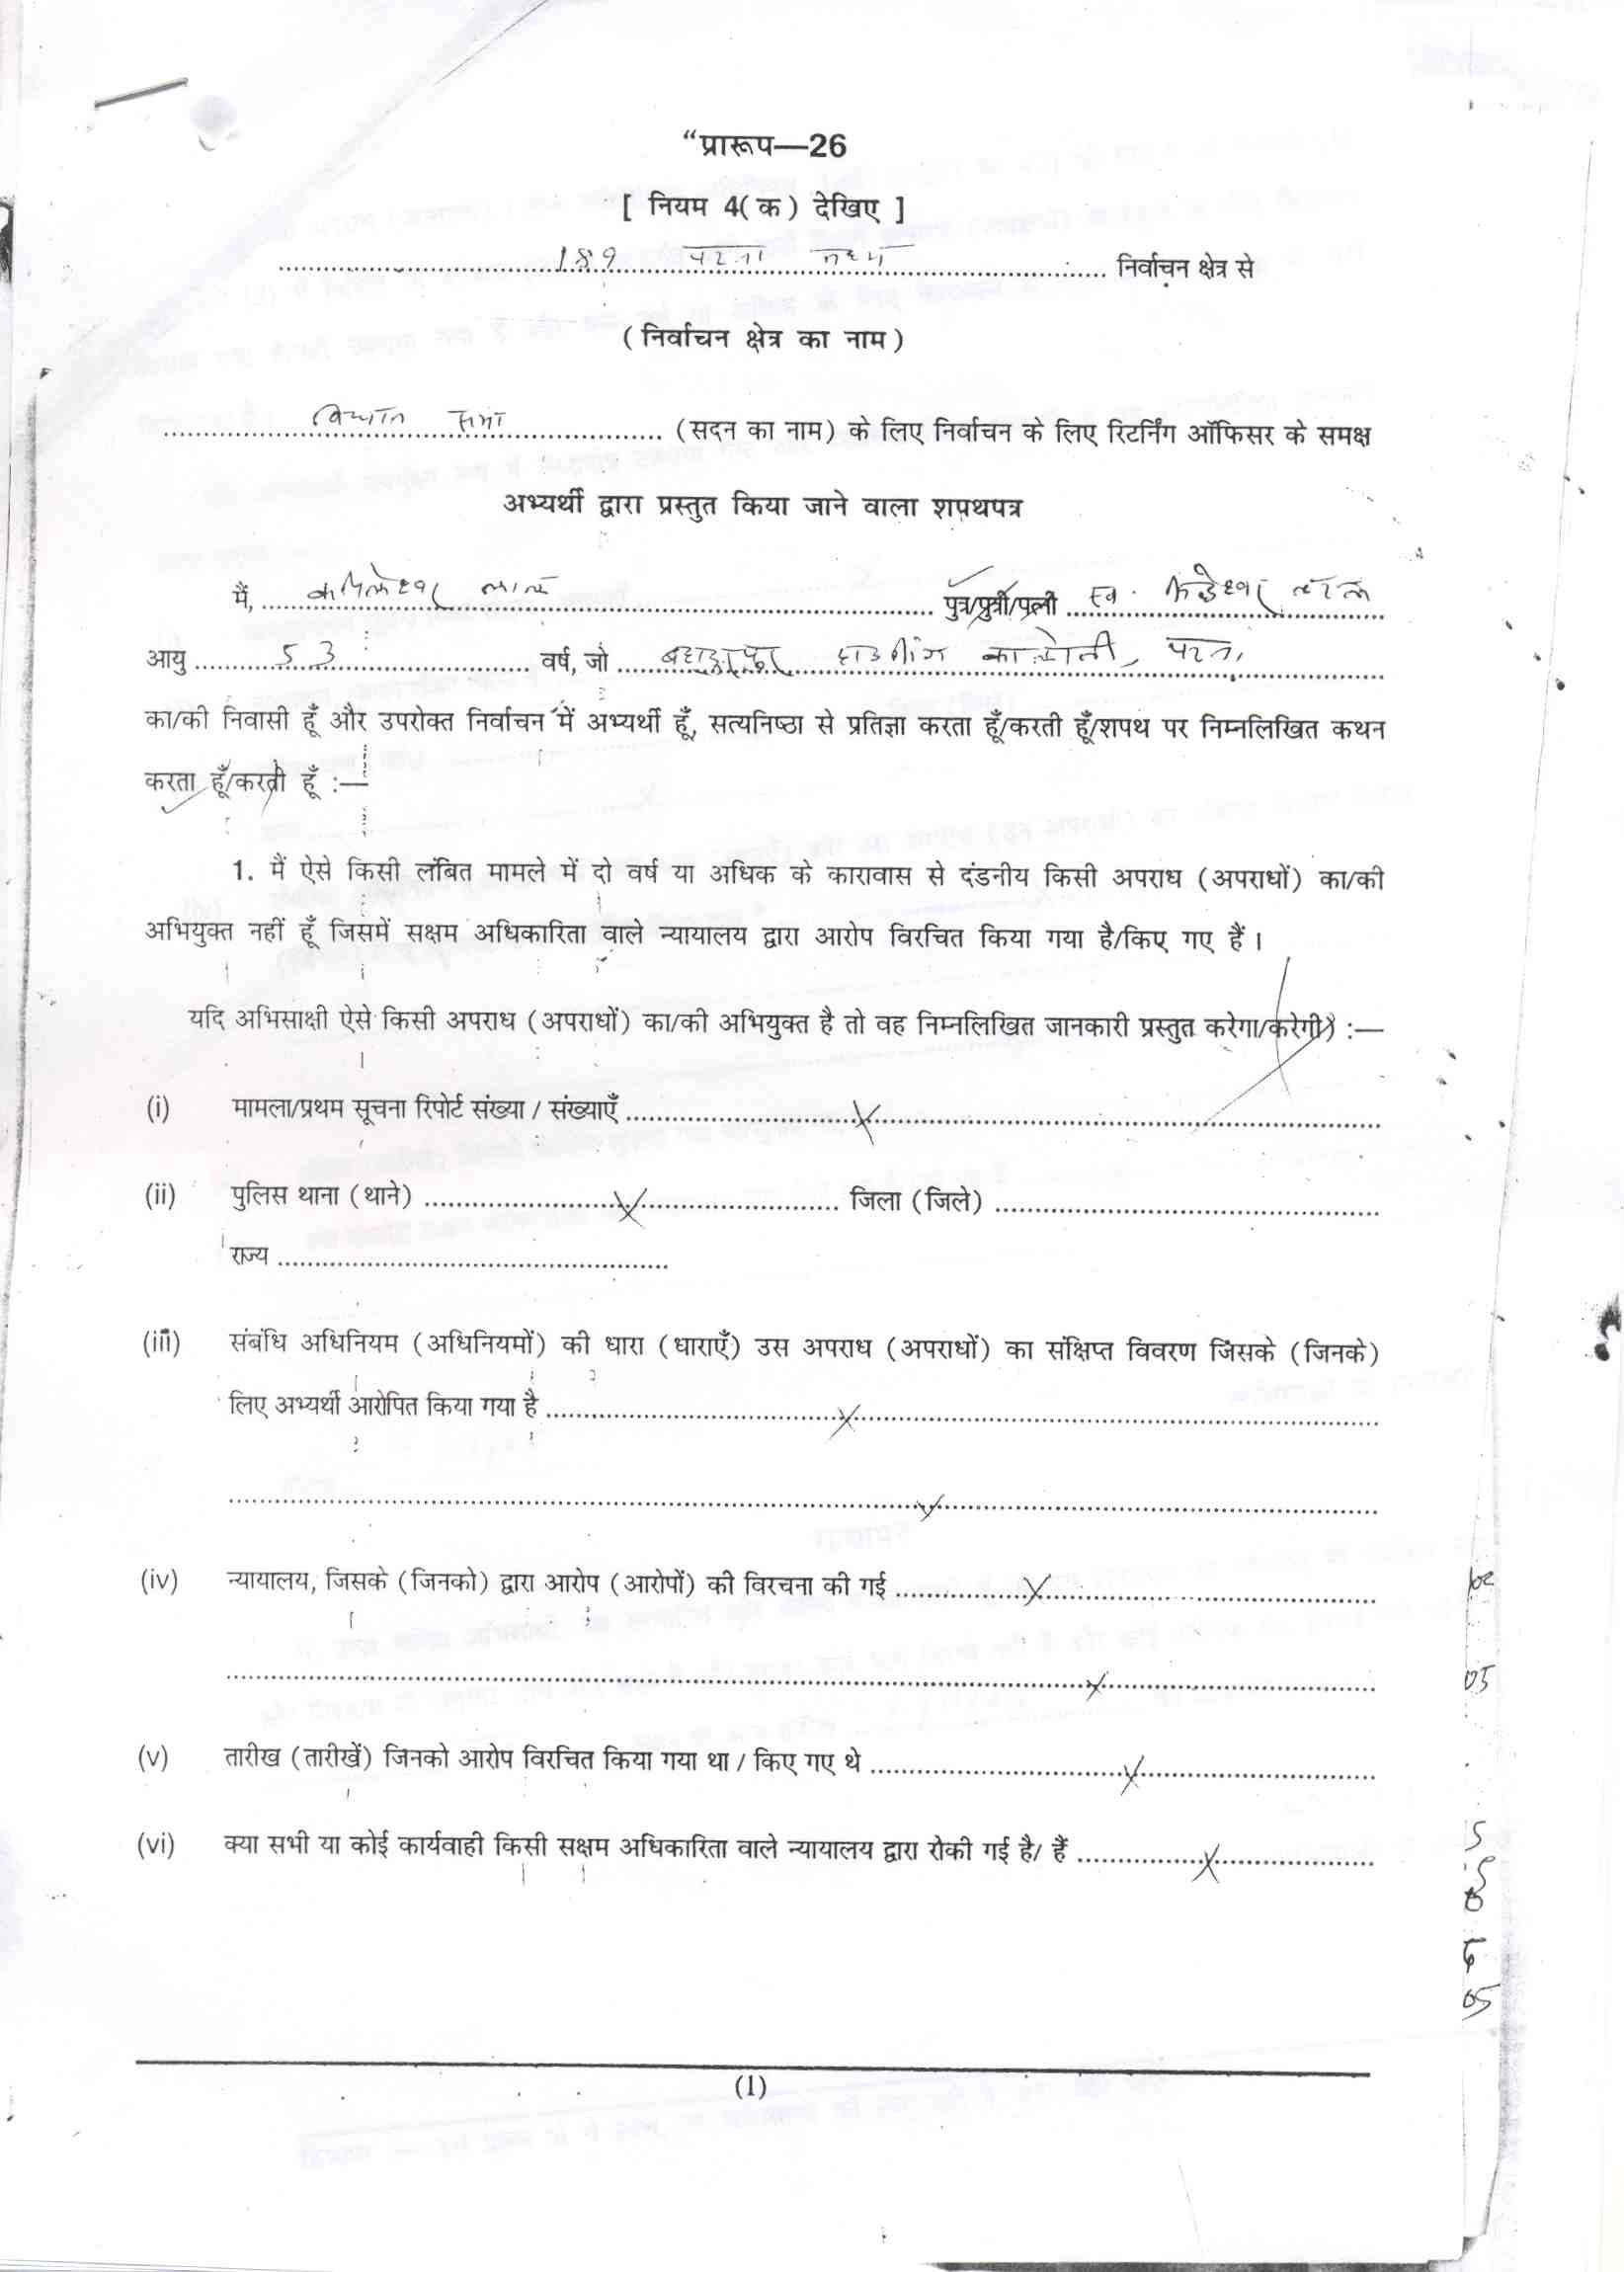 “प्रारूप—26
[ नियम 4(क) देखिए ]
189 पटना मध्य निर्वाचन क्षेत्र से
(निर्वाचन क्षेत्र का नाम)
विधान सभा (सदन का नाम) के लिए निर्वाचन के लिए रिटर्निंग ऑफिसर के समक्ष
अभ्यर्थी द्वारा प्रस्तुत किया जाने वाला शपथपत्र
मैं, कमलेश्वर लाल पुत्र/पुत्री/पत्नी स्व. लाल
आयु 53 वर्ष, जो बहादुरपुर हाउसिंग कालोनी, पटना
का/की निवासी हूँ और उपरोक्त निर्वाचन में अभ्यर्थी हूँ, सत्यनिष्ठा से प्रतिज्ञा करता हूँ/करती हूँ/शपथ पर निम्नलिखित कथन
करता हूँ/करती हूँ :—
1. मैं ऐसे किसी लंबित मामले में दो वर्ष या अधिक के कारावास से दंडनीय किसी अपराध (अपराधों) का/की
अभियुक्त नहीं हूँ जिसमें सक्षम अधिकारिता वाले न्यायालय द्वारा आरोप विरचित किया गया है/किए गए हैं ।
यदि अभिसाक्षी ऐसे किसी अपराध (अपराधों) का/की अभियुक्त है तो वह निम्नलिखित जानकारी प्रस्तुत करेगा/करेगी) :—
(i) मामला/प्रथम सूचना रिपोर्ट संख्या / संख्याएँ X
(ii) पुलिस थाना (थाने) X जिला (जिले)
राज्य
(iii) संबंधि अधिनियम (अधिनियमों) की धारा (धाराएँ) उस अपराध (अपराधों) का संक्षिप्त विवरण जिसके (जिनके)
लिए अभ्यर्थी आरोपित किया गया है X
X
(iv) न्यायालय, जिसके (जिनको) द्वारा आरोप (आरोपों) की विरचना की गई X
X
(v) तारीख (तारीखें) जिनको आरोप विरचित किया गया था / किए गए थे X
(vi) क्या सभी या कोई कार्यवाही किसी सक्षम अधिकारिता वाले न्यायालय द्वारा रोकी गई है/ हैं X
(1)